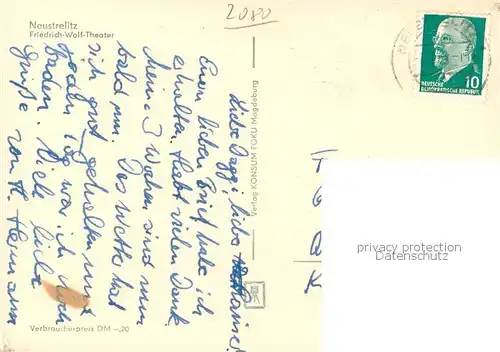 Neustrelitz
Friedrich-Wolf-Theater
2080
DEUTSCHE
DEMOKRATISCHE REPUBLIK
10
Verlag KONSUM FOKU Magdeburg
Liebe Daggi, liebe
Euren lieben Brief habe ich
erhalten. Habt vielen Dank.
Meine 3 Wochen sind nun
bald um. Das Wetter hat
sich gut gehalten und
jeden Tag war ich zum
Baden. Viele liebe
Grüße von H. Heimann
privacy protection
watermark
Verbraucherpreis DM -,20